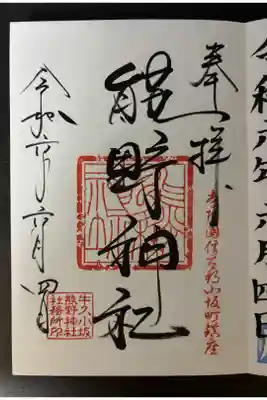 和 年六月四日
奉拝
常陸国信太郡小坂町鎮座
熊野神社
牛久小坂
熊野神社
社務所印
令和六年六月四日